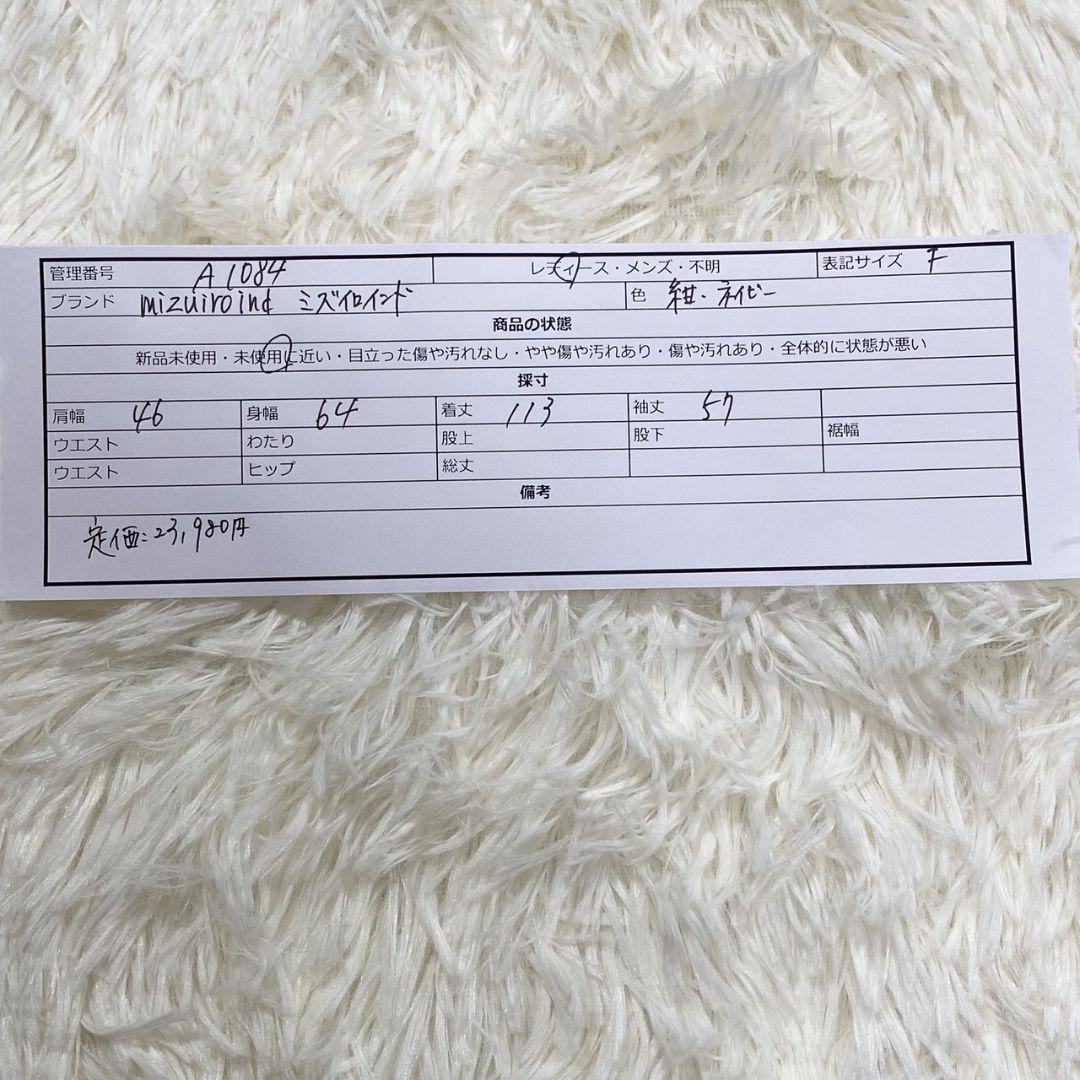 管理番号 A1084 レディース・メンズ・不明 表記サイズ F
ブランド mizuiroind ミズイロインド 色 紺・ネイビー
商品の状態
新品未使用・未使用に近い・目立った傷や汚れなし・やや傷や汚れあり・傷や汚れあり・全体的に状態が悪い
採寸
肩幅 46 身幅 64 着丈 113 袖丈 57
ウエスト わたり 股上 股下 裾幅
ウエスト ヒップ 総丈
備考
定価:23,980円